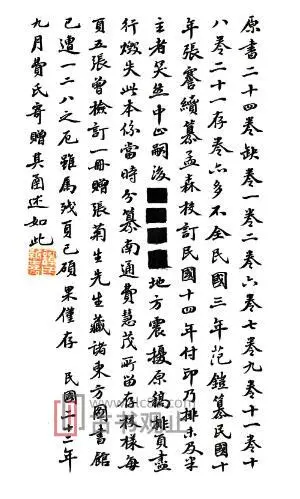 原書二十四卷缺卷一卷二卷六卷七卷九卷十一卷十
八卷二十一存卷六多不全民國三年范鎧纂民國十
年張謇續纂孟森校訂民國十四年付印乃排未及半
主者中止嗣後地方震擾原稿排頁盡
行燬失此本係當時分纂南通費慧茂所留存校樣每
頁五張曾檢訂一冊贈張菊生先生藏諸東方圖書館
已遭一二八之厄雖屬殘頁已碩果僅存 民國二十二年
九月費氏寄贈其函述如此
古书观止